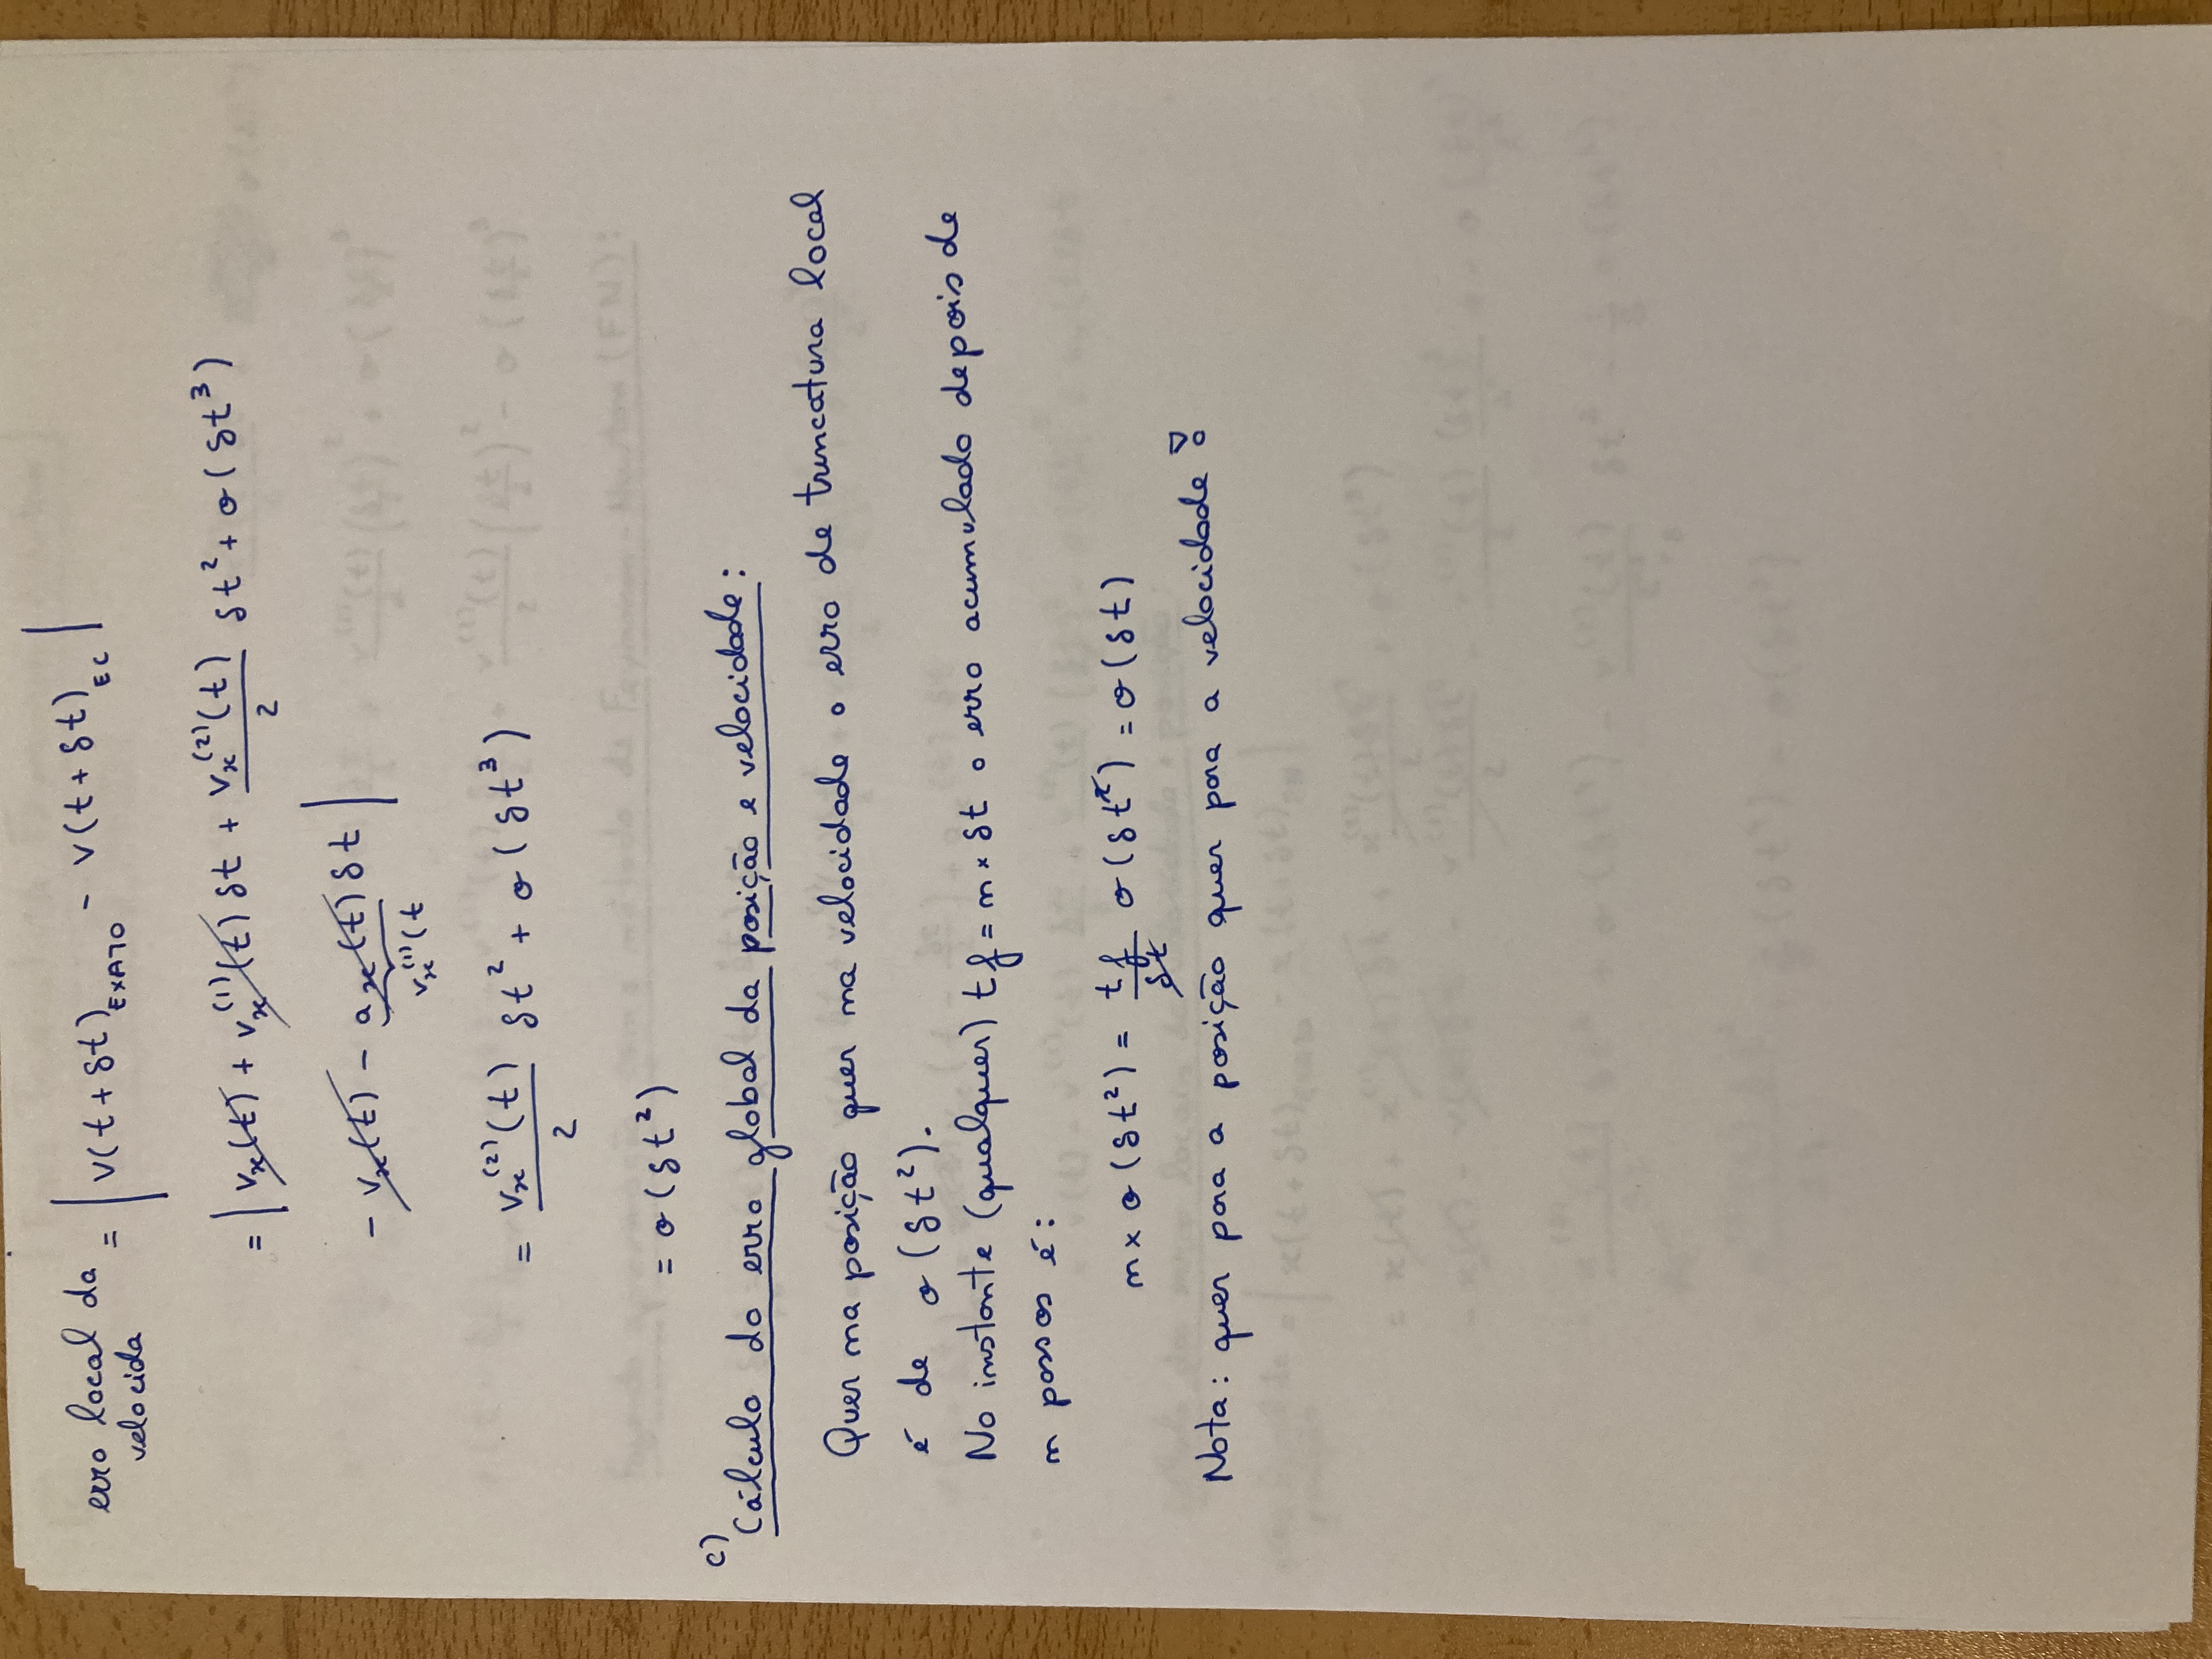 erro local da velocida = | v(t + δt)EXATO - v(t + δt)EC |
= | vx(t) + vx⁽¹⁾(t) δt + vx⁽²⁾(t)/2 δt² + o(δt³)
- vx(t) - ax(t) δt |
vx⁽¹⁾(t
= vx⁽²⁾(t)/2 δt² + o(δt³)
= o(δt²)
c) Cálculo do erro global da posição e velocidade:
Quer na posição quer na velocidade o erro de truncatura local
é de o(δt²).
No instante (qualquer) tf = n × δt o erro acumulado depois de
n passos é:
n × o(δt²) = tf/δt o(δt²) = o(δt)
Nota: quer para a posição quer para a velocidade !